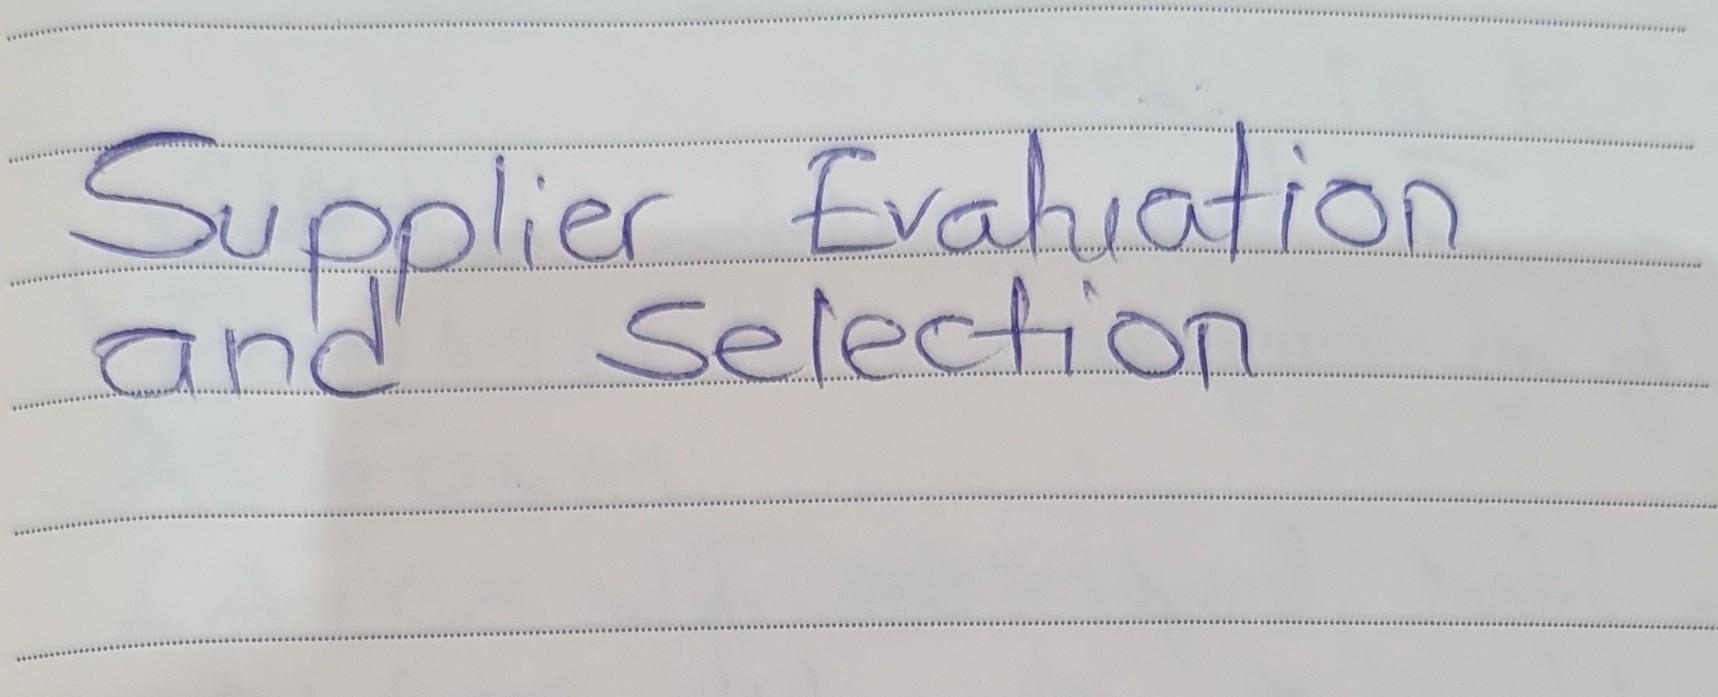 Supplier Evaluation
and Selection